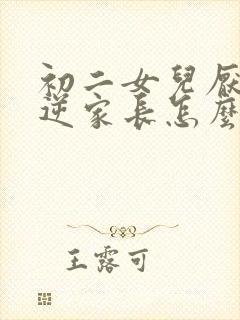 初二女兒厭
逆家長怎麼
王露可